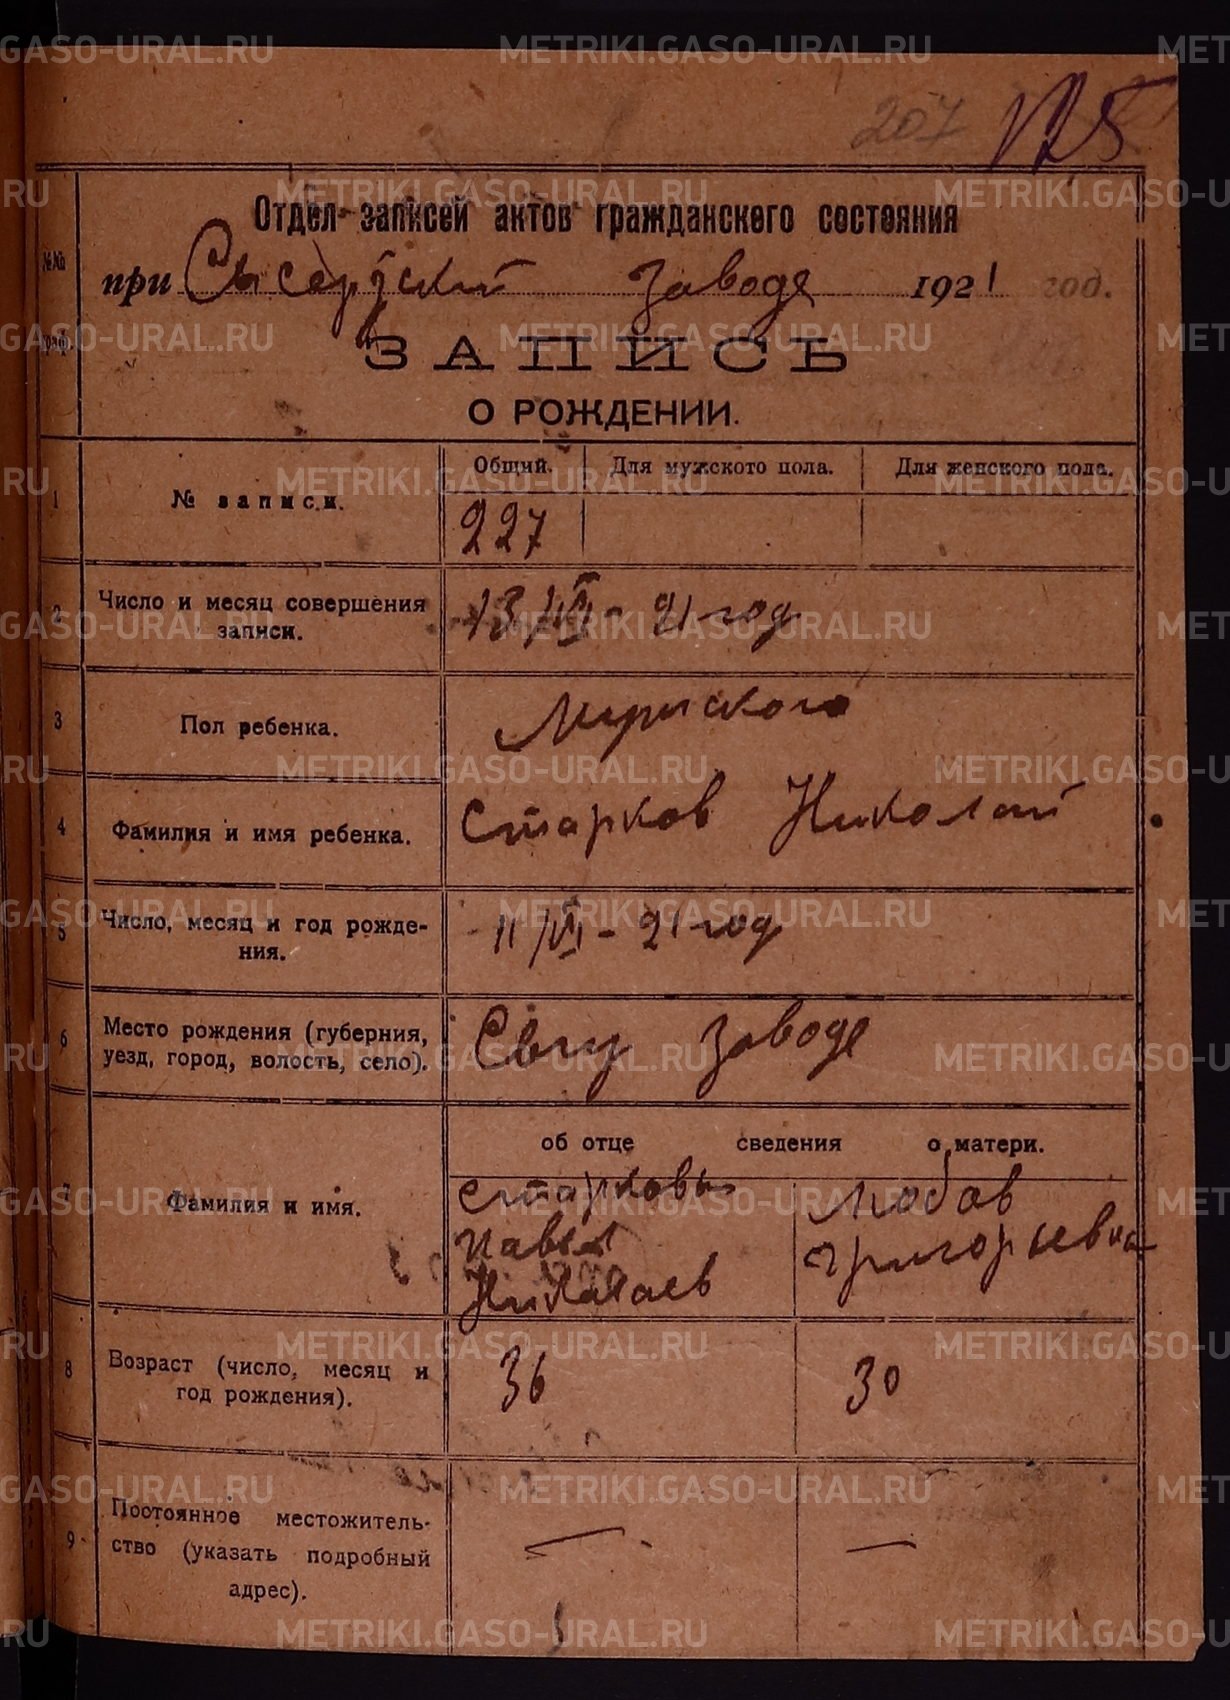 207 175
Отдел записей актов гражданского состояния
№№ граф.
при Сысертский заводе 1921 год.
ЗАПИСЬ
О РОЖДЕНИИ.
Общий. Для мужского пола. Для женского пола.
1 № записи. 227
2 Число и месяц совершения
записи.
13/VI - 21 год
3 Пол ребенка. Мужского
4 Фамилия и имя ребенка. Старков Николай
5 Число, месяц и год рожде-
ния.
11/VI - 21 год
6 Место рождения (губерния,
уезд, город, волость, село).
заводе
об отце сведения о матери.
7 Фамилия и имя.
Старковы Любов
Павел Григорьевна
Николаев
8 Возраст (число, месяц и
год рождения).
36 30
9 Постоянное местожитель-
ство (указать подробный
адрес).
— —
METRIKI.GASO-URAL.RU